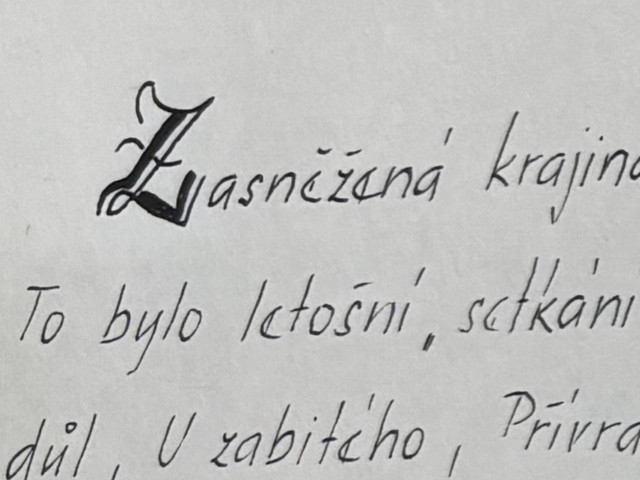 Zasněžená krajina
To bylo letošní, setkání
důl, U zabitého, Přívra